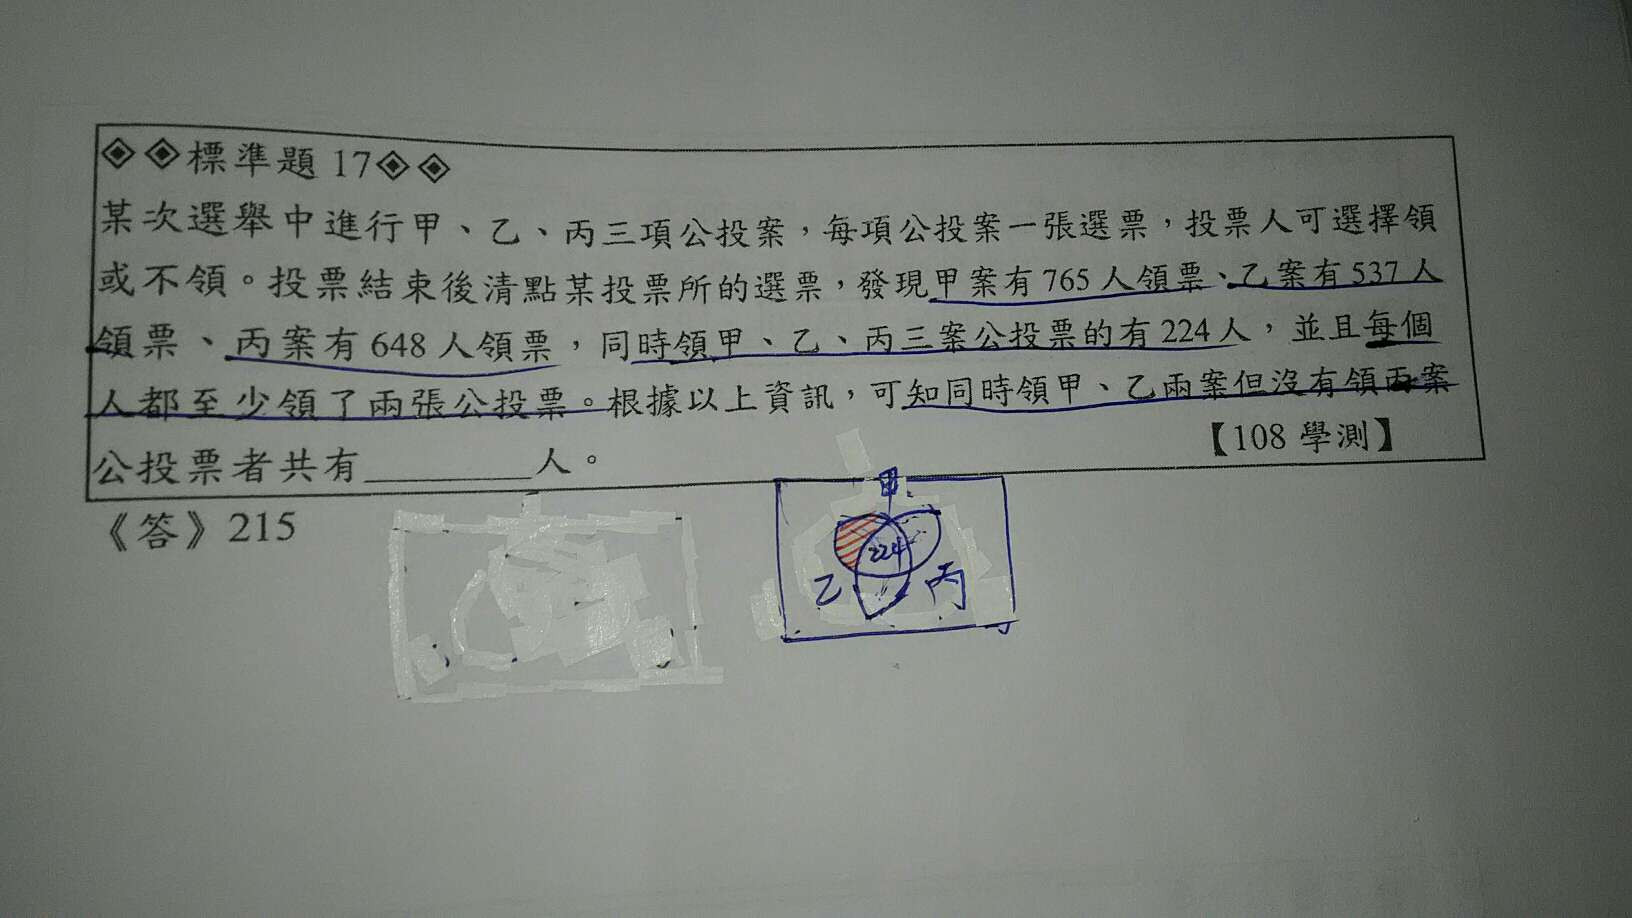 ◈◈標準題 17◈◈
某次選舉中進行甲、乙、丙三項公投案，每項公投案一張選票，投票人可選擇領
或不領。投票結束後清點某投票所的選票，發現甲案有 765 人領票、乙案有 537 人
領票、丙案有 648 人領票，同時領甲、乙、丙三案公投票的有 224 人，並且每個
人都至少領了兩張公投票。根據以上資訊，可知同時領甲、乙兩案但沒有領丙案
公投票者共有________人。
【108 學測】
《答》215
甲
224
乙 丙